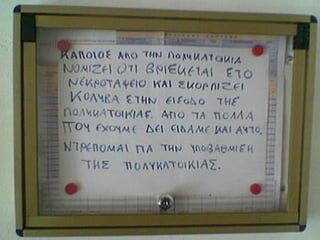 ΚΑΠΟΙΟΣ ΑΠΟ ΤΗΝ ΠΟΛΥΚΑΤΟΙΚΙΑ
ΝΟΜΙΖΕΙ ΟΤΙ ΒΡΙΣΚΕΤΑΙ ΣΤΟ
ΝΕΚΡΟΤΑΦΕΙΟ ΚΑΙ ΣΚΟΡΠΙΖΕΙ
ΚΟΛΥΒΑ ΣΤΗΝ ΕΙΣΟΔΟ ΤΗΣ
ΠΟΛΥΚΑΤΟΙΚΙΑΣ. ΑΠΟ ΤΑ ΠΟΛΛΑ
ΠΟΥ ΕΧΟΥΜΕ ΔΕΙ ΕΙΔΑΜΕ ΚΑΙ ΑΥΤΟ.
ΝΤΡΕΠΟΜΑΙ ΓΙΑ ΤΗΝ ΥΠΟΒΑΘΜΙΣΗ
ΤΗΣ ΠΟΛΥΚΑΤΟΙΚΙΑΣ.